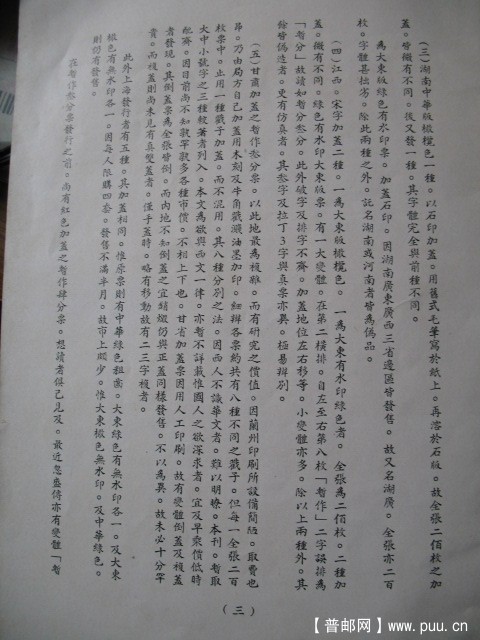 (三)湖南中華版橄欖色一種。以石印加蓋。用舊式毛筆寫於紙上。再落於石版。故全張二佰枚之加
蓋。皆微有不同。後又發一種。其字體完全與前種不同。
為大東版綠色有水印票。加蓋石印。因湖南廣東廣西三省邊區皆發售。故又名湖廣。全張亦二百
枚。字體甚拙劣。除此兩種之外。託名湖南或河南者皆為偽品。
(四)江西。宋字加蓋二種。一為大東版橄欖色。一為大東有水印綠色者。全張為二佰枚。二種加
蓋。微有不同。綠色有水印大東版票。有一大變體。在第二橫排。自左至右第八枚「暫作」二字誤排為
「暫分」故讀如暫分叁分。此外破字及排字不齊。加蓋地位左右移等。小變體亦多。除以上兩種外。其
餘皆偽造者。更有仿真者。其叁字及拉丁3字與真票亦異。極易辨別。
(五)甘肅加蓋之暫作叁分票。以此地最為複雜。而有研究之價值。因蘭州印刷所設備簡陋。取費也
昂。乃由局方自己加蓋用木刻及牛角戳濺油墨加印。細辨各票約共有八種不同之戳子。但每一全張二百
枚票中。止用一種戳子加蓋。而不混用。其八種分別之法。因西人不識華文者。難以明瞭。本刊。暫取
大中小號字之三種較著者列入。本文為欲與西文一律。亦暫不詳載惟國人之欲深求者。宜及早乘價低時
配齊。因日前尚不知孰罕孰多各種市價。不相上下也。甘省加蓋票因用人工印刷。故有變體倒蓋及複蓋
者發現。其倒蓋票為全張皆倒。而內地不知倒蓋之宜錯燬仍與正蓋同樣發售。不以為異。故未必十分罕
貴。而複蓋則尚未見有真雙蓋者。僅于蓋時。略有移動故有二三字複者。
此外上海發行者有五種。其加蓋相同。惟原票則有中華綠色粗齒。大東綠色有無水印各一。及大東
橄色有無水印各一。因每人限購四套。發售不滿半月。故市上頗少。惟大東橄色無水印。及中華綠色。
則仍有發售。
在暫作叁分票發行之前。尚有紅色加蓋之暫作肆分票。想讀者俱已見及。最近忽盛傳亦有變體「暫
(三)
【普邮网】www.puu.cn